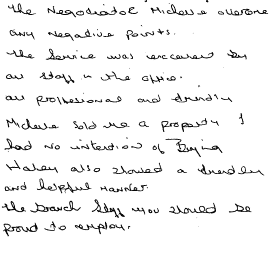 The Negotiator Michelle overcome
any negative points.
The Service was excellent by
all staff in the office.
all professional and friendly
Michelle sold me a property I
had no intention of Buying
Haley also showed a friendly
and helpful manner.
The branch staff you should be
proud to employ.